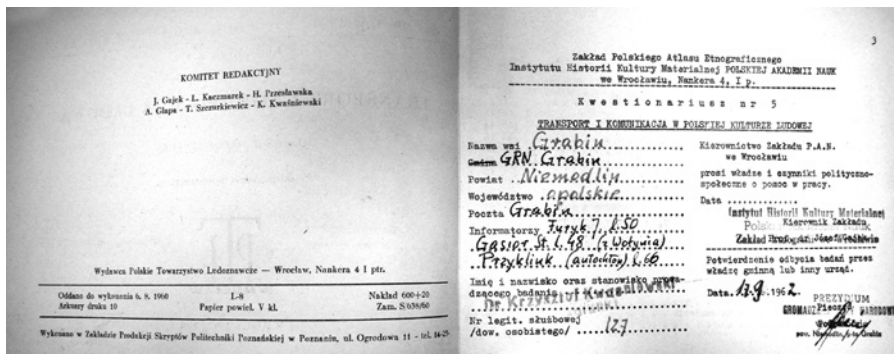 KOMITET REDAKCYJNY
J. Gajek - L. Kaczmarek - H. Przesławska
A. Glapa - T. Szczurkiewicz - K. Kwaśniewski
Wydawca Polskie Towarzystwo Ludoznawcze — Wrocław, Nankera 4 I ptr.
Oddano do wykonania 6. 8. 1960 L-8 Nakład 600+20
Arkuszy druku 10 Papier powiel. V kl. Zam. S/638/60
Wykonano w Zakładzie Produkcji Skryptów Politechniki Poznańskiej w Poznaniu, ul. Ogrodowa 11 - tel.
3
Zakład Polskiego Atlasu Etnograficznego
Instytutu Historii Kultury Materialnej POLSKIEJ AKADEMII NAUK
we Wrocławiu, Nankera 4, I p.
Kwestionariusz nr 5
TRANSPORT I KOMUNIKACJA W POLSKIEJ KULTURZE LUDOWEJ
Nazwa wsi Grabin
GRN Grabin
Powiat Niemodlin
Województwo opolskie
Poczta Grabin
Informatorzy Furyk J. l. 50
Gąsior St. l. 48 (z Wołynia)
Przyklink (autochton) l. 66
Imię i nazwisko oraz stanowisko prowadzącego badania
Dr Krzysztof Kwaśniewski
Nr legit. służbowej
/dow. osobistego/ 127
Kierownictwo Zakładu P.A.N.
we Wrocławiu
prosi władze i czynniki polityczno-
społeczne o pomoc w pracy.
Data
Instytut Historii Kultury Materialnej
Kierownik Zakładu
Potwierdzenie odbycia badań przez
władzę gminną lub inny urząd.
Data 13.9. 1962
PREZYDIUM
Pieczęć